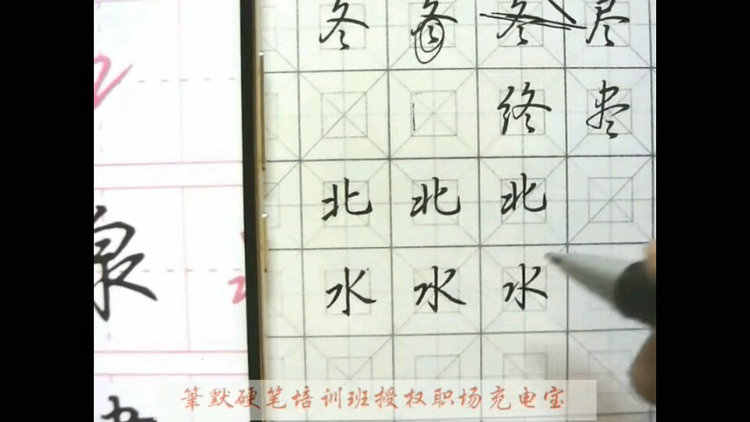 冬 冬 冬 尽
终 尽
北 北 北
水 水 水
泉
筆默硬笔培训班授权职场充电宝